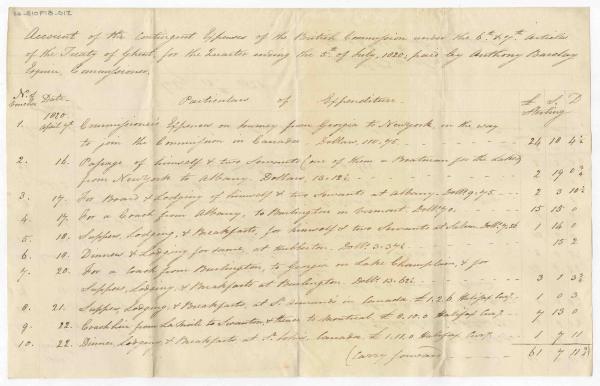 Account of the Contingent Expenses of the British Commission under the 6th & 7th articles
of the Treaty of Ghent, for the Quarter ending the 5th of July, 1820; paid by Anthony Barclay
Esquire, Commissioner.
No. of Voucher Date Particulars of Expenditure. £ S. D
1820 Sterling
1. April 9th Commissioner's Expenses on Journey from Georgia to Newyork in the way
to join the Commission in Canada Dollars, 110,,75. 24 18 4½
2. 16. Passage of himself & two Servants (one of them a Boatman for the Lakes)
from Newyork to Albany. Dollars, 13.12½ 2 19 0¾
3. 17. For Board & Lodging of himself & two Servants at Albany. Dolls. 9,,75 2 3 10½
4. 17. For a Coach from Albany, to Burlington in Vermont. Dolls. 70. 15 15 0
5. 18. Supper, Lodging, & Breakfasts, for himself & two Servants at Salem. Dolls. 7,,56 1 14 0
6. 19. Dinner & Lodging for same, at Hubbleton. Dolls. 3.37½ 15 2
7. 20. For a coach from Burlington, to Georgia on Lake Champlain, & for
Supper, Lodging, & Breakfasts at Burlington. Dolls. 13.62½ 3 1 3¾
8. 21. Supper, Lodging, & Breakfasts, at St. in Canada £1.2.6 Halifax Curry. 1 0 3
9. 22. Coach hire from to Swanton, & thence to Montreal £8.10.0 Halifax Curry. 7 13 0
10. 22. Dinner, Lodging, & Breakfasts at St. Johns, Canada £1.11.0 Halifax Curry. 1 7 11
(Carry forward 61 7 11¾